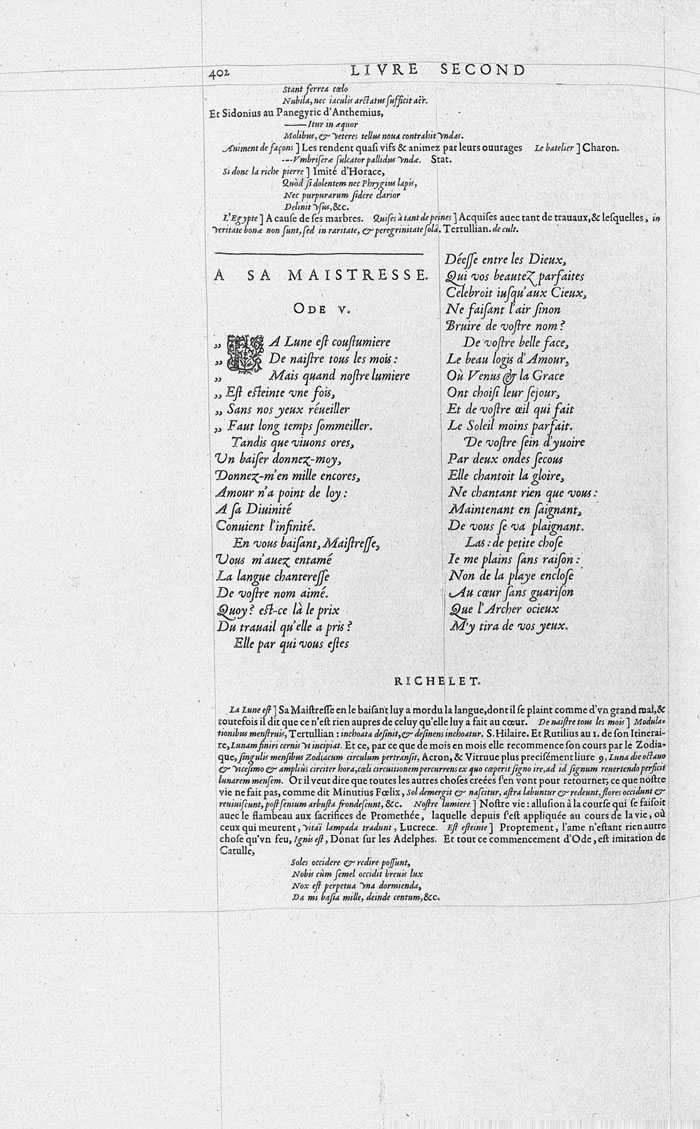 402 LIVRE SECOND
Stant ferrea cœlo
Nubila, nec iaculis arctatus sufficit aër.
Et Sidonius au Panegyric d'Anthemius,
——Itur in æquor
Molibus, & veteres tellus noua contrahit vndas.
Animent de façons] Les rendent quasi vifs & animez par leurs ouurages Le batelier] Charon.
---Vmbriferæ sulcator pallidus vndæ. Stat.
Si donc la riche pierre] Imité d'Horace,
Quòd si dolentem nec Phrygius lapis,
Nec purpurarum sidere clarior
Delinit vsus, &c.
L'Egypte] A cause de ses marbres. Quises à tant de peines] Acquises auec tant de trauaux, & lesquelles, in
veritate bonæ non sunt, sed in raritate, & peregrinitate solâ. Tertullian. de cult.
A SA MAISTRESSE.
ODE V.
„ LA Lune est coustumiere
„ De naistre tous les mois:
„ Mais quand nostre lumiere
„ Est esteinte vne fois,
„ Sans nos yeux réueiller
„ Faut long temps sommeiller.
Tandis que viuons ores,
Vn baiser donnez-moy,
Donnez-m'en mille encores,
Amour n'a point de loy:
A sa Diuinité
Conuient l'infinité.
En vous baisant, Maistresse,
Vous m'auez entamé
La langue chanteresse
De vostre nom aimé.
Quoy? est-ce là le prix
Du trauail qu'elle a pris?
Elle par qui vous estes
Déesse entre les Dieux,
Qui vos beautez parfaites
Celebroit iusqu'aux Cieux,
Ne faisant l'air sinon
Bruire de vostre nom?
De vostre belle face,
Le beau logis d'Amour,
Où Venus & la Grace
Ont choisi leur sejour,
Et de vostre œil qui fait
Le Soleil moins parfait.
De vostre sein d'yuoire
Par deux ondes secous
Elle chantoit la gloire,
Ne chantant rien que vous:
Maintenant en saignant,
De vous se va plaignant.
Las: de petite chose
Ie me plains sans raison:
Non de la playe enclose
Au cœur sans guarison
Que l'Archer ocieux
M'y tira de vos yeux.
RICHELET.
La Lune est] Sa Maistresse en le baisant luy a mordu la langue, dont il se plaint comme d'vn grand mal, &
toutefois il dit que ce n'est rien aupres de celuy qu'elle luy a fait au cœur. De naistre tous les mois] Modula-
tionibus menstruis, Tertullian: inchoata desinit, & desinens inchoatur. S. Hilaire. Et Rutilius au 1. de son Itinerai-
re, Lunam finiri cernis vt incipiat. Et ce, par ce que de mois en mois elle recommence son cours par le Zodia-
que, singulis mensibus Zodiacum circulum pertransit, Acron, & Vitruue plus precisément liure 9. Luna die octauo
& vicesimo & ampliùs circiter hora, cœli circuitionem percurrens ex quo cœperit signo ire, ad id signum reuertendo perficit
lunarem mensem. Or il veut dire que toutes les autres choses creées s'en vont pour retourner; ce que nostre
vie ne fait pas, comme dit Minutius Fœlix, Sol demergit & nascitur, astra labuntur & redeunt, flores occidunt &
reuiuiscunt, post senium arbusta frondescunt, &c. Nostre lumiere] Nostre vie: allusion à la course qui se faisoit
auec le flambeau aux sacrifices de Promethée, laquelle depuis s'est appliquée au cours de la vie, où
ceux qui meurent, vitaï lampada tradunt, Lucrece. Est esteinte] Proprement, l'ame n'estant rien autre
chose qu'vn feu, Ignis est, Donat sur les Adelphes. Et tout ce commencement d'Ode, est imitation de
Catulle,
Soles occidere & redire possunt,
Nobis cùm semel occidit breuis lux
Nox est perpetua vna dormienda,
Da mi basia mille, deinde centum, &c.